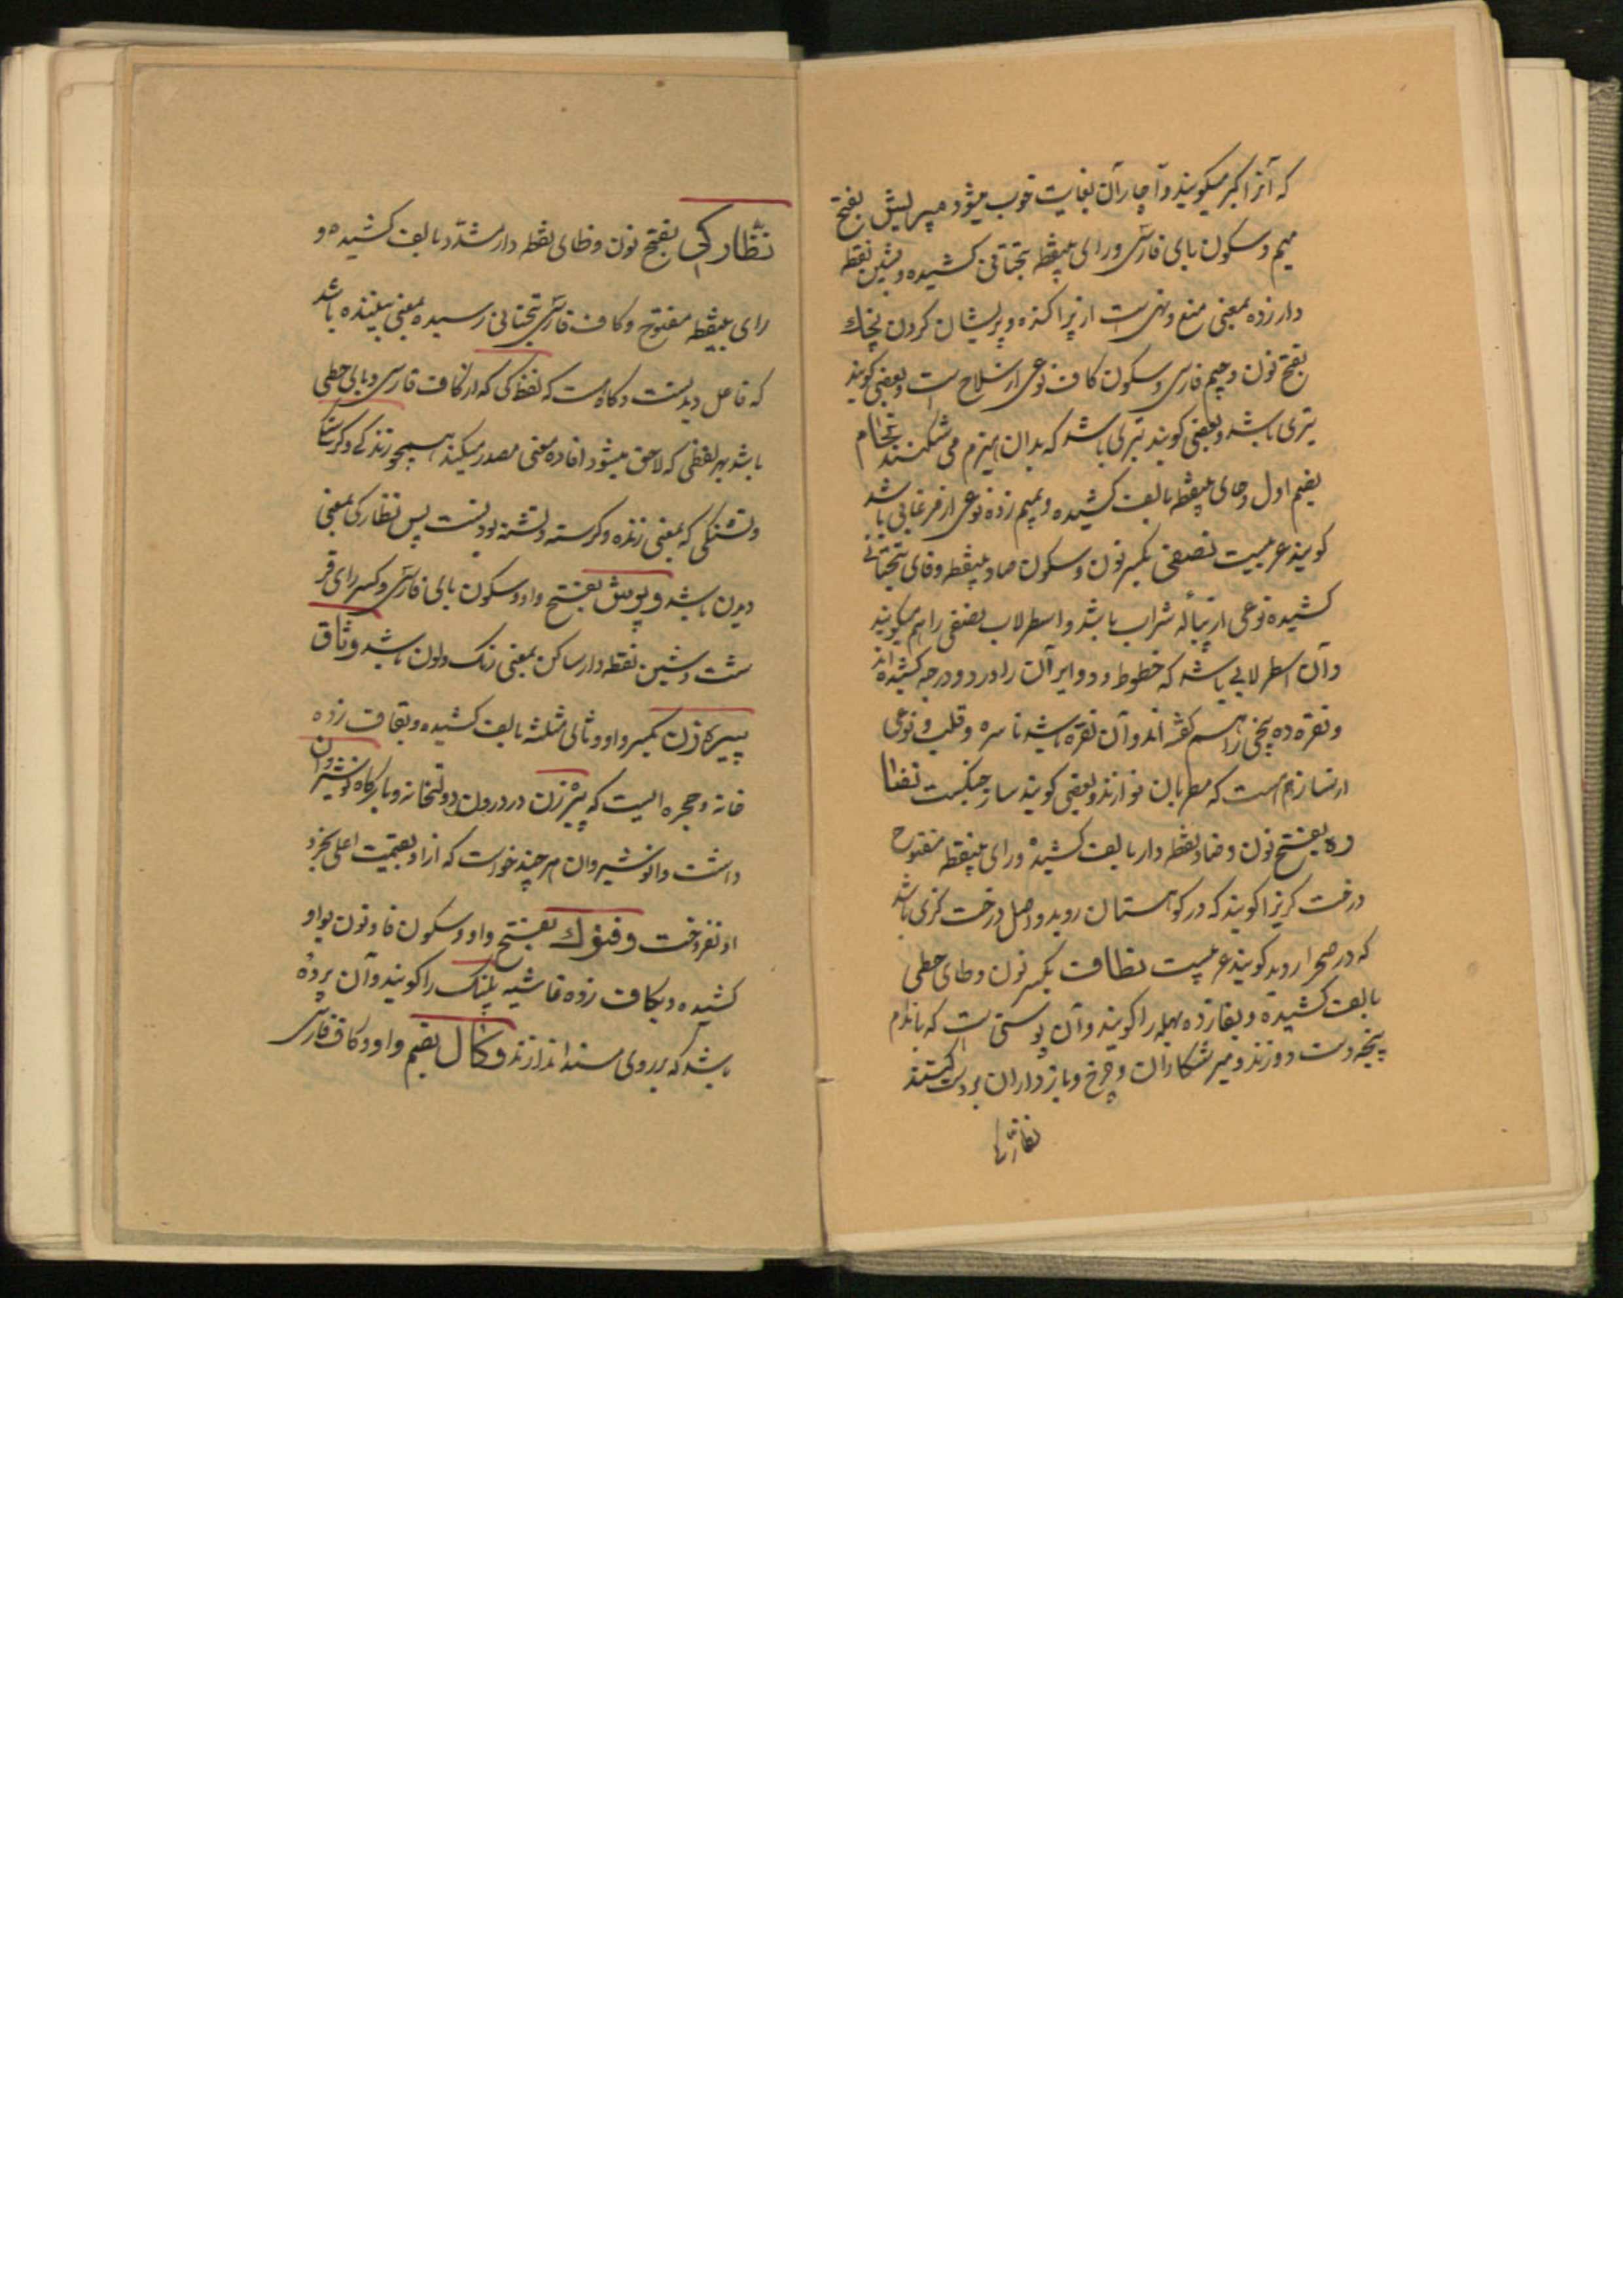 که آنرا کبر میگویند و آچار آن بغایت خوب میشود مپریش بفتح
میم و سکون بای فارسی و رای بینقطه بتحتانی کشیده و بشین نقطه
دار زده بمعنی منع و نهی است از پراکنده و پریشان کردن نچک
بفتح نون و جیم فارسی و سکون کاف نوعی از سلاح است و بعضی گویند
تبری باشد و بعضی گویند تبرکی باشد که بدان هیزم می شکنند نحام
بضم اول و حای بینقطه بالف کشیده و بمیم زده نوعی از مرغابی باشد
گویند عربیست نصفی بکسر نون و سکون صاد بینقطه و فای بتحتانی
کشیده نوعی از پیاله شراب باشد و اسطرلاب نصفی را هم میگویند
و آن اسطرلابی باشد که خطوط و دوایر آن را در دو درجه کشیده اند
و نقره ده پنجی را هم گفته اند و آن نقره باشد ناسره و قلب و نوعی
از ساز هم است که مطربان نوازند و بعضی گویند ساز چنگست نضا
ره بفتح نون و ضاد نقطه دار بالف کشیده و رای بینقطه مفتوح
درخت گزیرا گویند که در کوهستان روید و اصل درخت گزی باشد
که در صحرا روید گویند عربیست نطاف بکسر نون و طای حطی
بالف کشیده و بفا زده بهله را گویند و آن پوستی است که باندام
پنجه دست دوزند و میرشکاران و چرخ و بازداران بر دست کنند
نظارکی
نظارکی بفتح نون و ظای نقطه دار مشدد بالف کشیده و
رای بینقطه مفتوح و کاف فارسی بتحتانی رسیده بمعنی بیننده باشد
که فاعل دیدنست و گاه است که لفظ کی که از کاف فارسی و یای حطی
باشد بهر لفظی که لاحق میشود افاده معنی مصدر میکند همچو زندکی و کرسنکی
و تشنکی که بمعنی زنده و کرسنه و تشنه بودنست پس نظارکی بمعنی
دیدن باشد وپرش بفتح واو و سکون بای فارسی و کسر رای قر
شت و شین نقطه دار ساکن بمعنی رنک و لون باشد وثاق
پیره زن بکسر واو و ثای مثلثه بالف کشیده و بقاف زده
خانه و حجره ایست که پیره زن در درون دولتخانه و بارکاه نوشیروان
داشت و انوشیروان هر چند خواست که از او بقیمت اعلی بخرد
او نفروخت وفنوک بفتح واو و سکون فا و نون بواو
کشیده و بکاف زده غاشیه پلنک را گویند و آن پرده
باشد که بر روی مسند اندازند وکال بضم واو و کاف فارسی